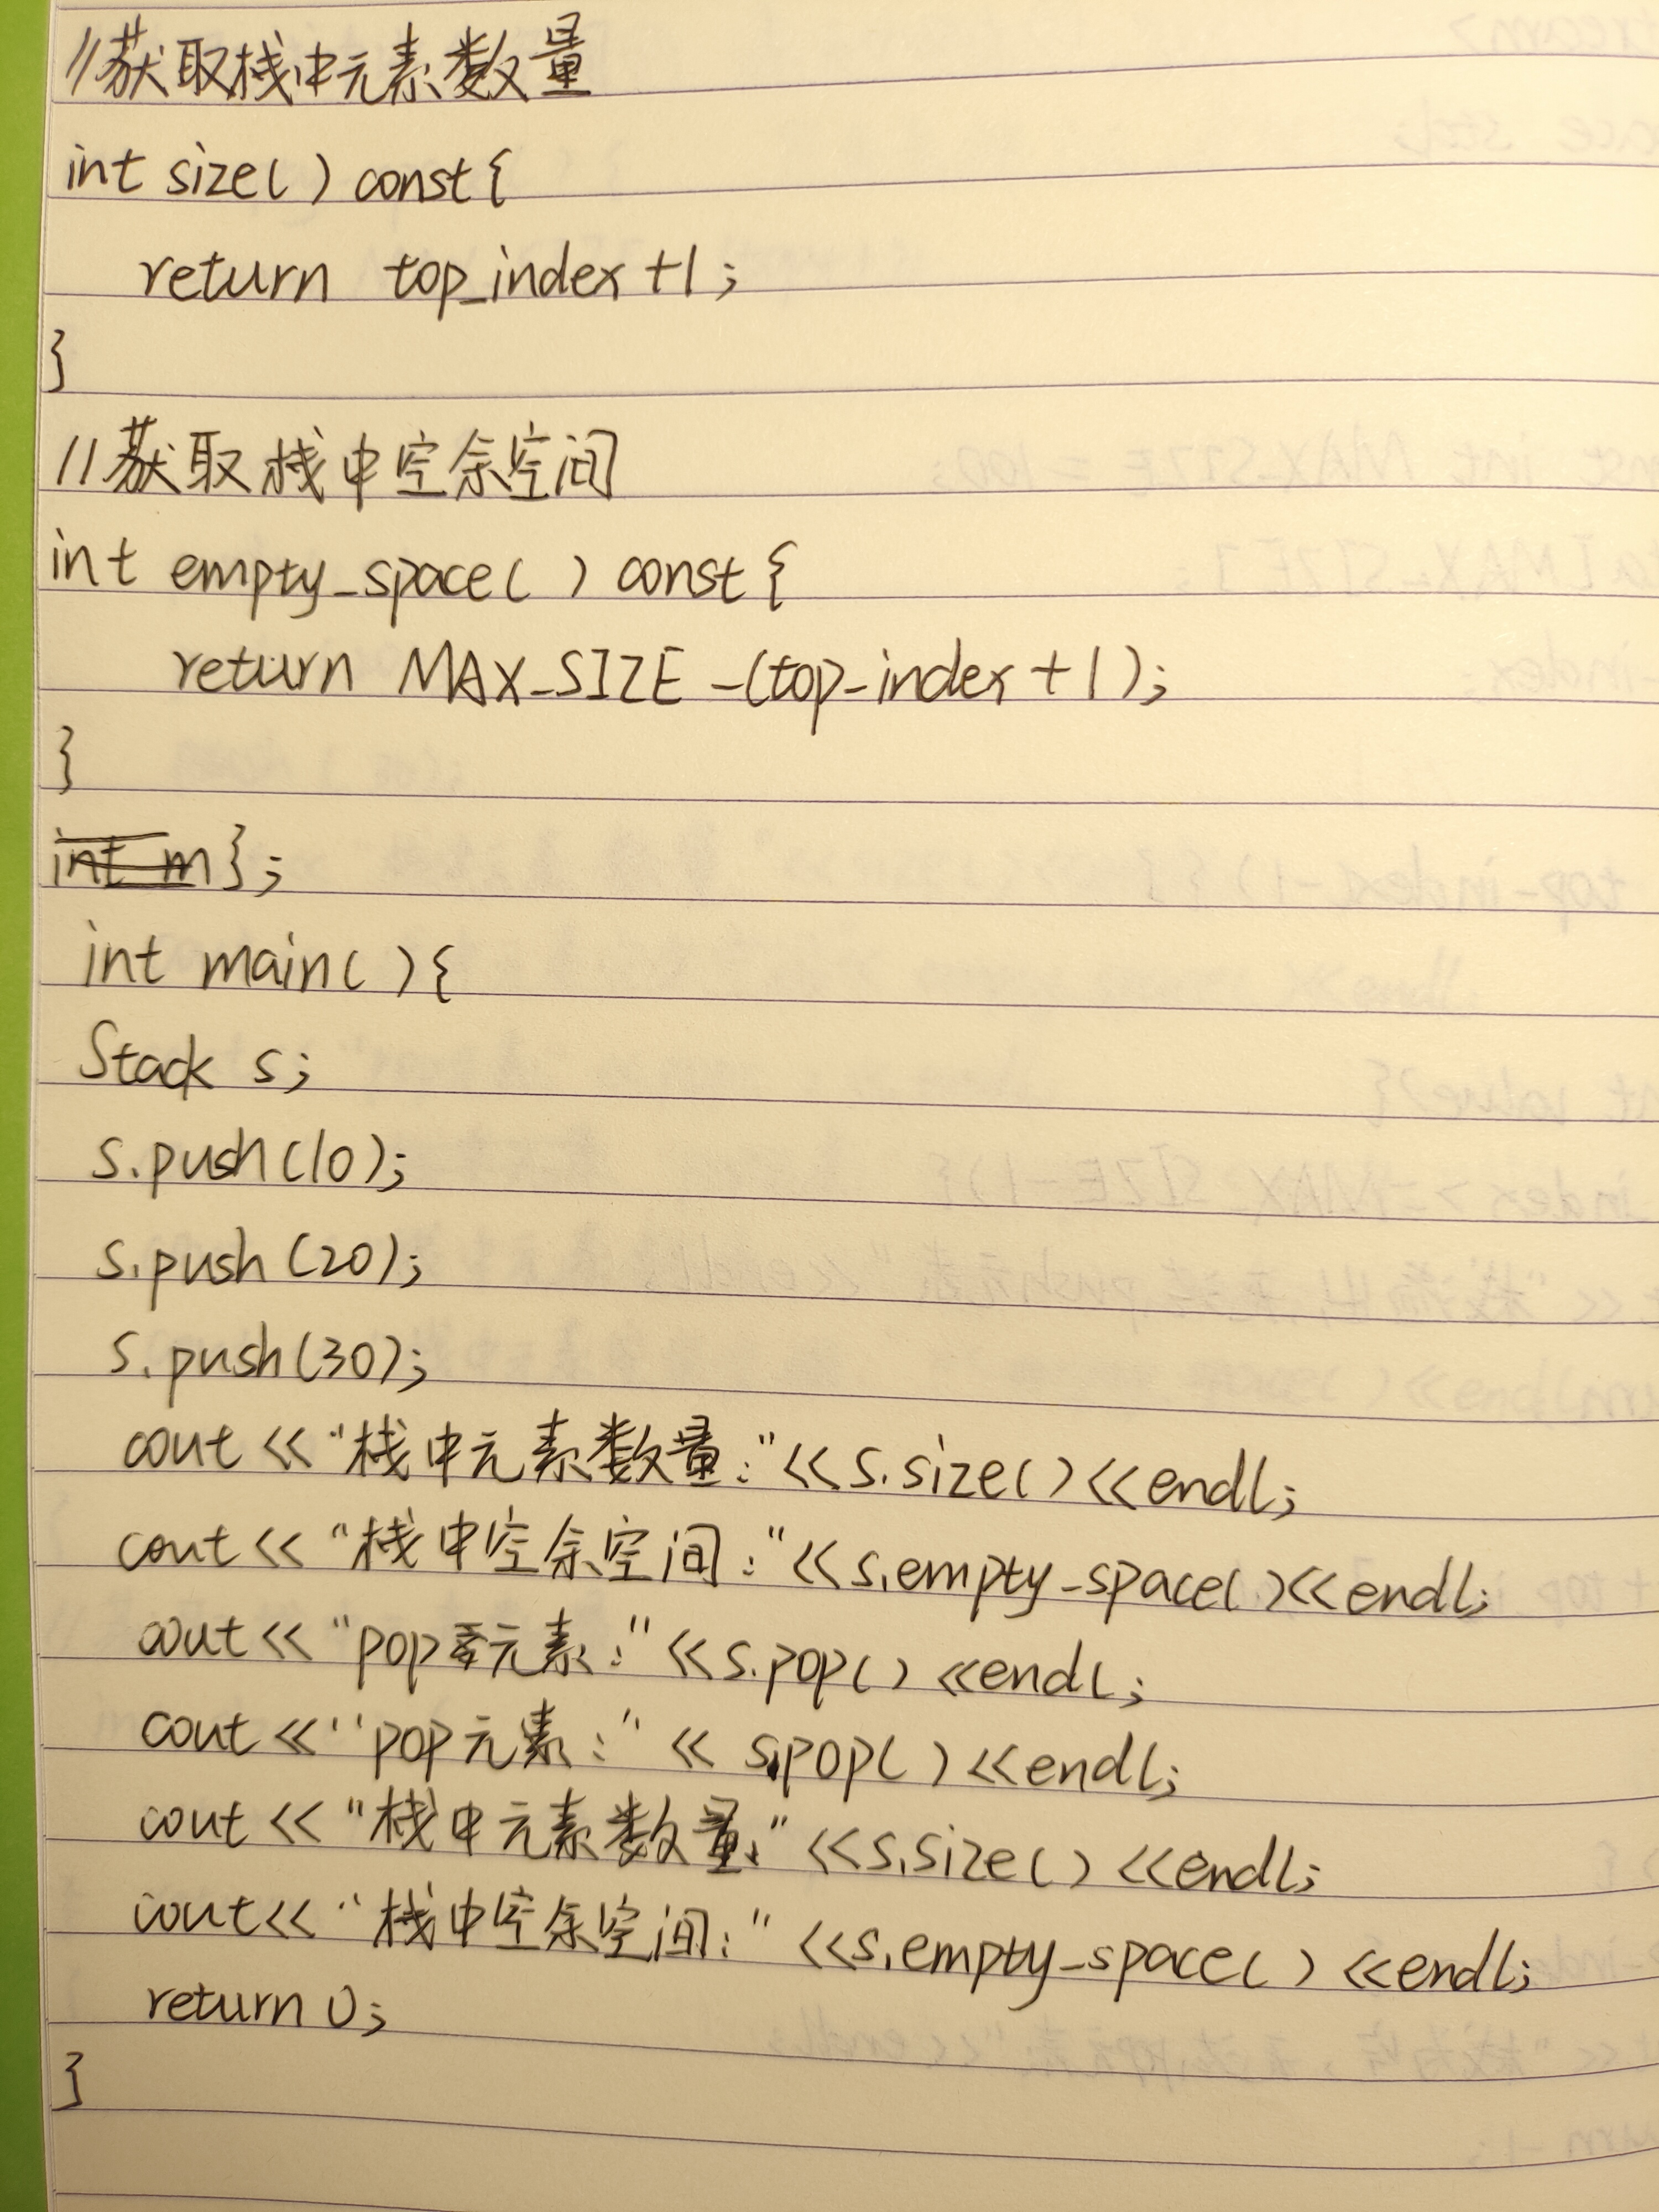 //获取栈中元素数量
int size() const{
return top_index+1;
}
//获取栈中空余空间
int empty_space() const{
return MAX_SIZE-(top_index+1);
}
};
int main(){
Stack s;
s.push(10);
s.push(20);
s.push(30);
cout<<"栈中元素数量:"<<s.size()<<endl;
cout<<"栈中空余空间:"<<s.empty_space()<<endl;
cout<<"pop元素:"<<s.pop()<<endl;
cout<<"pop元素:"<<s.pop()<<endl;
cout<<"栈中元素数量:"<<s.size()<<endl;
cout<<"栈中空余空间:"<<s.empty_space()<<endl;
return 0;
}